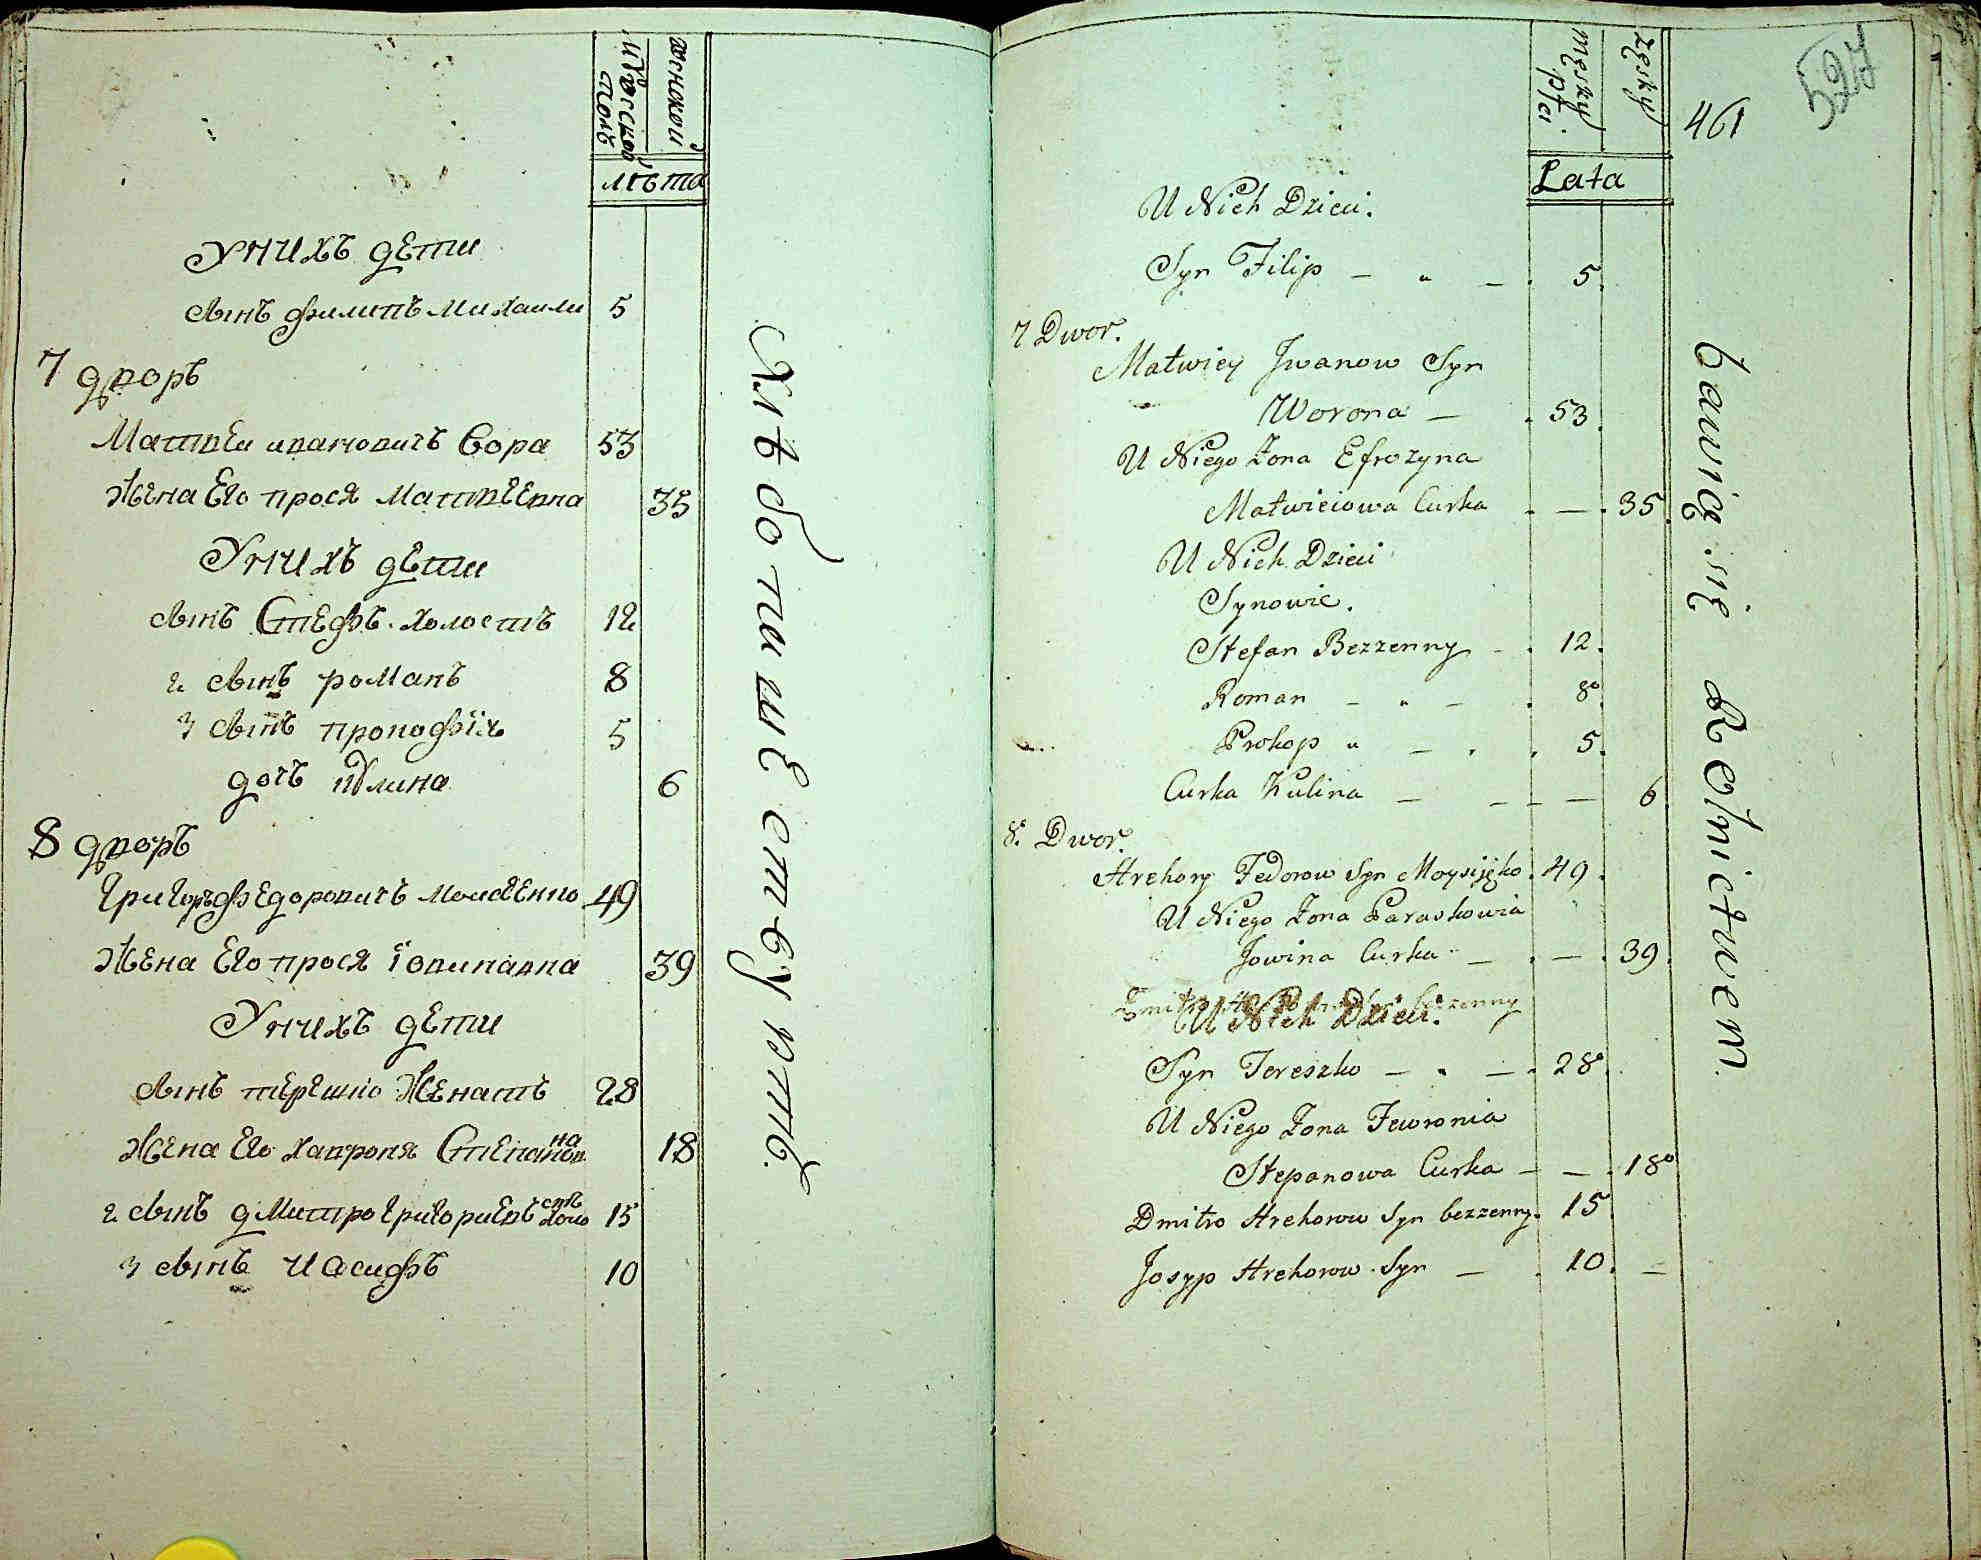 Мужескої
полъ
женскои
лѣта
Унихъ дети
сынъ филипъ михаили 5
7 дворъ
Матвеи ивановичъ Вора 53
Жена Его прося Матвеевна 35
Унихъ дети
сынъ Стефъ. холостъ 12
2 сынъ романъ 8
3 сынъ прокофїи 5
дочъ кулина 6
8 дворъ
григоръ федоровичъ моисеенко 49
Жена Его прося їовиповна 39
Унихъ дети
сынъ терешко Женатъ 28
Жена Его хавроня Степановна 18
2 сынъ дмитро григориевъ холостъ 15
3 сынъ иосифъ 10
Хлѣбопашествуютъ
męskiy
płci
żęskiy
461
527
Lata
U Nich Dzieci.
Syn Filip — " — 5.
7 Dwor.
Matwiey Jwanow Syn
Worona — 53.
U Niego Zona Efrozyna
Matwieiowa Curka — 35.
U Nich Dzieci
Synowie.
Stefan Bezzenny - 12.
Roman — " — 8.
Prokop " — 5.
Curka Kulina — — — 6
8. Dwor.
Hrehory Fedorow Syn Moysijęko 49.
U Niego Zona Paraskowia
Jowina Curka — — 39.
U Nich Dzieci.
Syn Tereszko — " — 28.
U Niego Zona Fewronia
Stepanowa Curka — — 18.
Dmitro Hrehorow Syn bezzenny. 15
Josyp Hrehorow Syn — 10. —
bawią się Rolnictwem